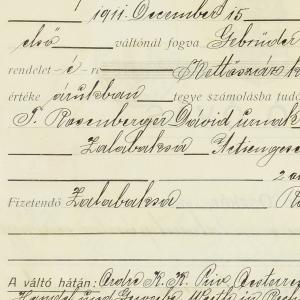 1911. December 15
első váltónál fogva Gebrüder
rendelet-é-re Mettószáz k
értéke árukban tegye számolásba tudó
T. Rosenberger Dávid urnak
Zalabaksa Actienges
2 a
Fizetendő Zalabaksa
A váltó hátán: Ordre K. K. Priv. Oesterrei
Handel und Gewerbe